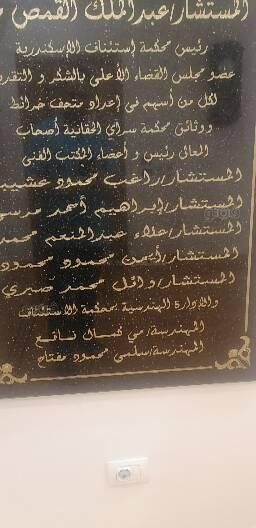 المستشار/عبدالملك القمص
رئيس محكمة إستئناف الإسكندرية
عضو مجلس القضاء الأعلى بالشكر و التقدير
لكل من أسهم في إعداد متحف خرائط
ووثائق محكمة سراي الحقانية أصحاب
المعالي رئيس و أعضاء المكتب الفني
المستشار/راغب محمود عشيبة
المستشار/إبراهيم أحمد مرسي
المستشار/علاء عبدالمنعم محمد
المستشار/أيمن محمود محمود
المستشار/وائل محمد صبري
والإدارة الهندسية بمحكمة الاستئناف
المهندسة/مي كمال نافع
المهندسة/سلمى محمود مفتاح